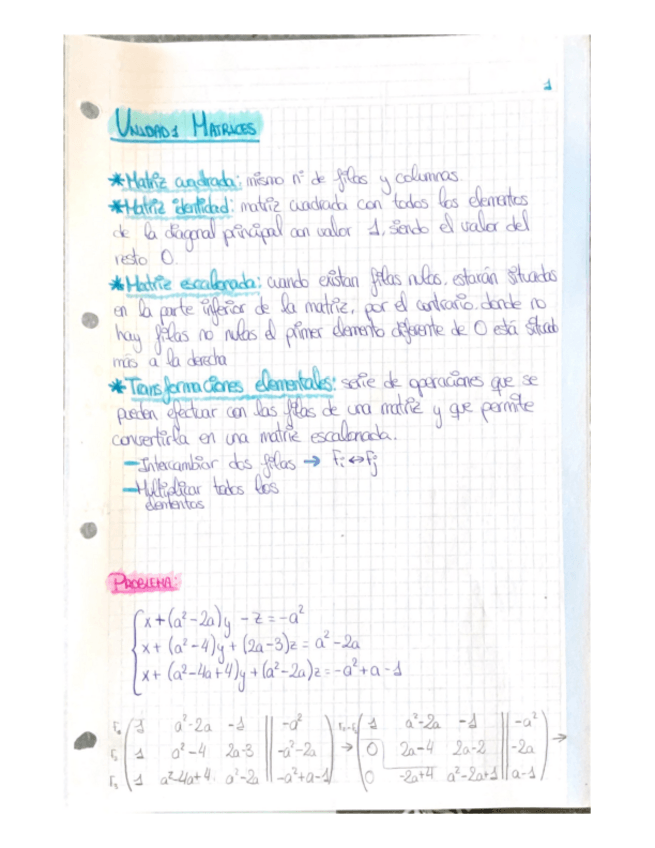 1
UNIDAD 1 MATRICES
*Matriz cuadrada: mismo nº de filas y columnas.
*Matriz identidad: matriz cuadrada con todos los elementos
de la diagonal principal con valor 1, siendo el valor del
resto 0.
*Matriz escalonada: cuando existan filas nulas, estarán situadas
en la parte inferior de la matriz, por el contrario, donde no
hay filas no nulas el primer elemento diferente de 0 está situado
más a la derecha
*Transformaciones elementales: serie de operaciones que se
pueden efectuar con las filas de una matriz y que permite
convertirla en una matriz escalonada.
-Intercambiar dos filas → Fi ↔ Fj
-Multiplicar todos los
elementos
PROBLEMA:
x+(a²-2a)y -z=-a²
x+(a²-4)y+(2a-3)z=a²-2a
x+(a²-4a+4)y+(a²-2a)z=-a²+a-1
1 a²-2a -1 || -a² → 1 a²-2a -1 || -a² →
1 a²-4 2a-3 || -a²-2a 0 2a-4 2a-2 || -2a
1 a²-4a+4 a²-2a || -a²+a-1 0 -2a+4 a²-2a+1 || a-1